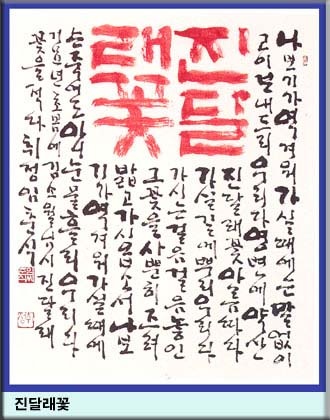 진달
래꽃
나보기가역겨워가실때에는말없이
고이보내드리우리다영변에약산
진달래꽃아름따다
가실길에뿌리우리다
가시는걸음걸음놓인
그꽃을사뿐히즈려
밟고가시옵소서나보
기가역겨워가실때에
는죽어도아니눈물흘리우리다
초봄에김소월님시진달래
꽃을적다취정임춘식
진달래꽃